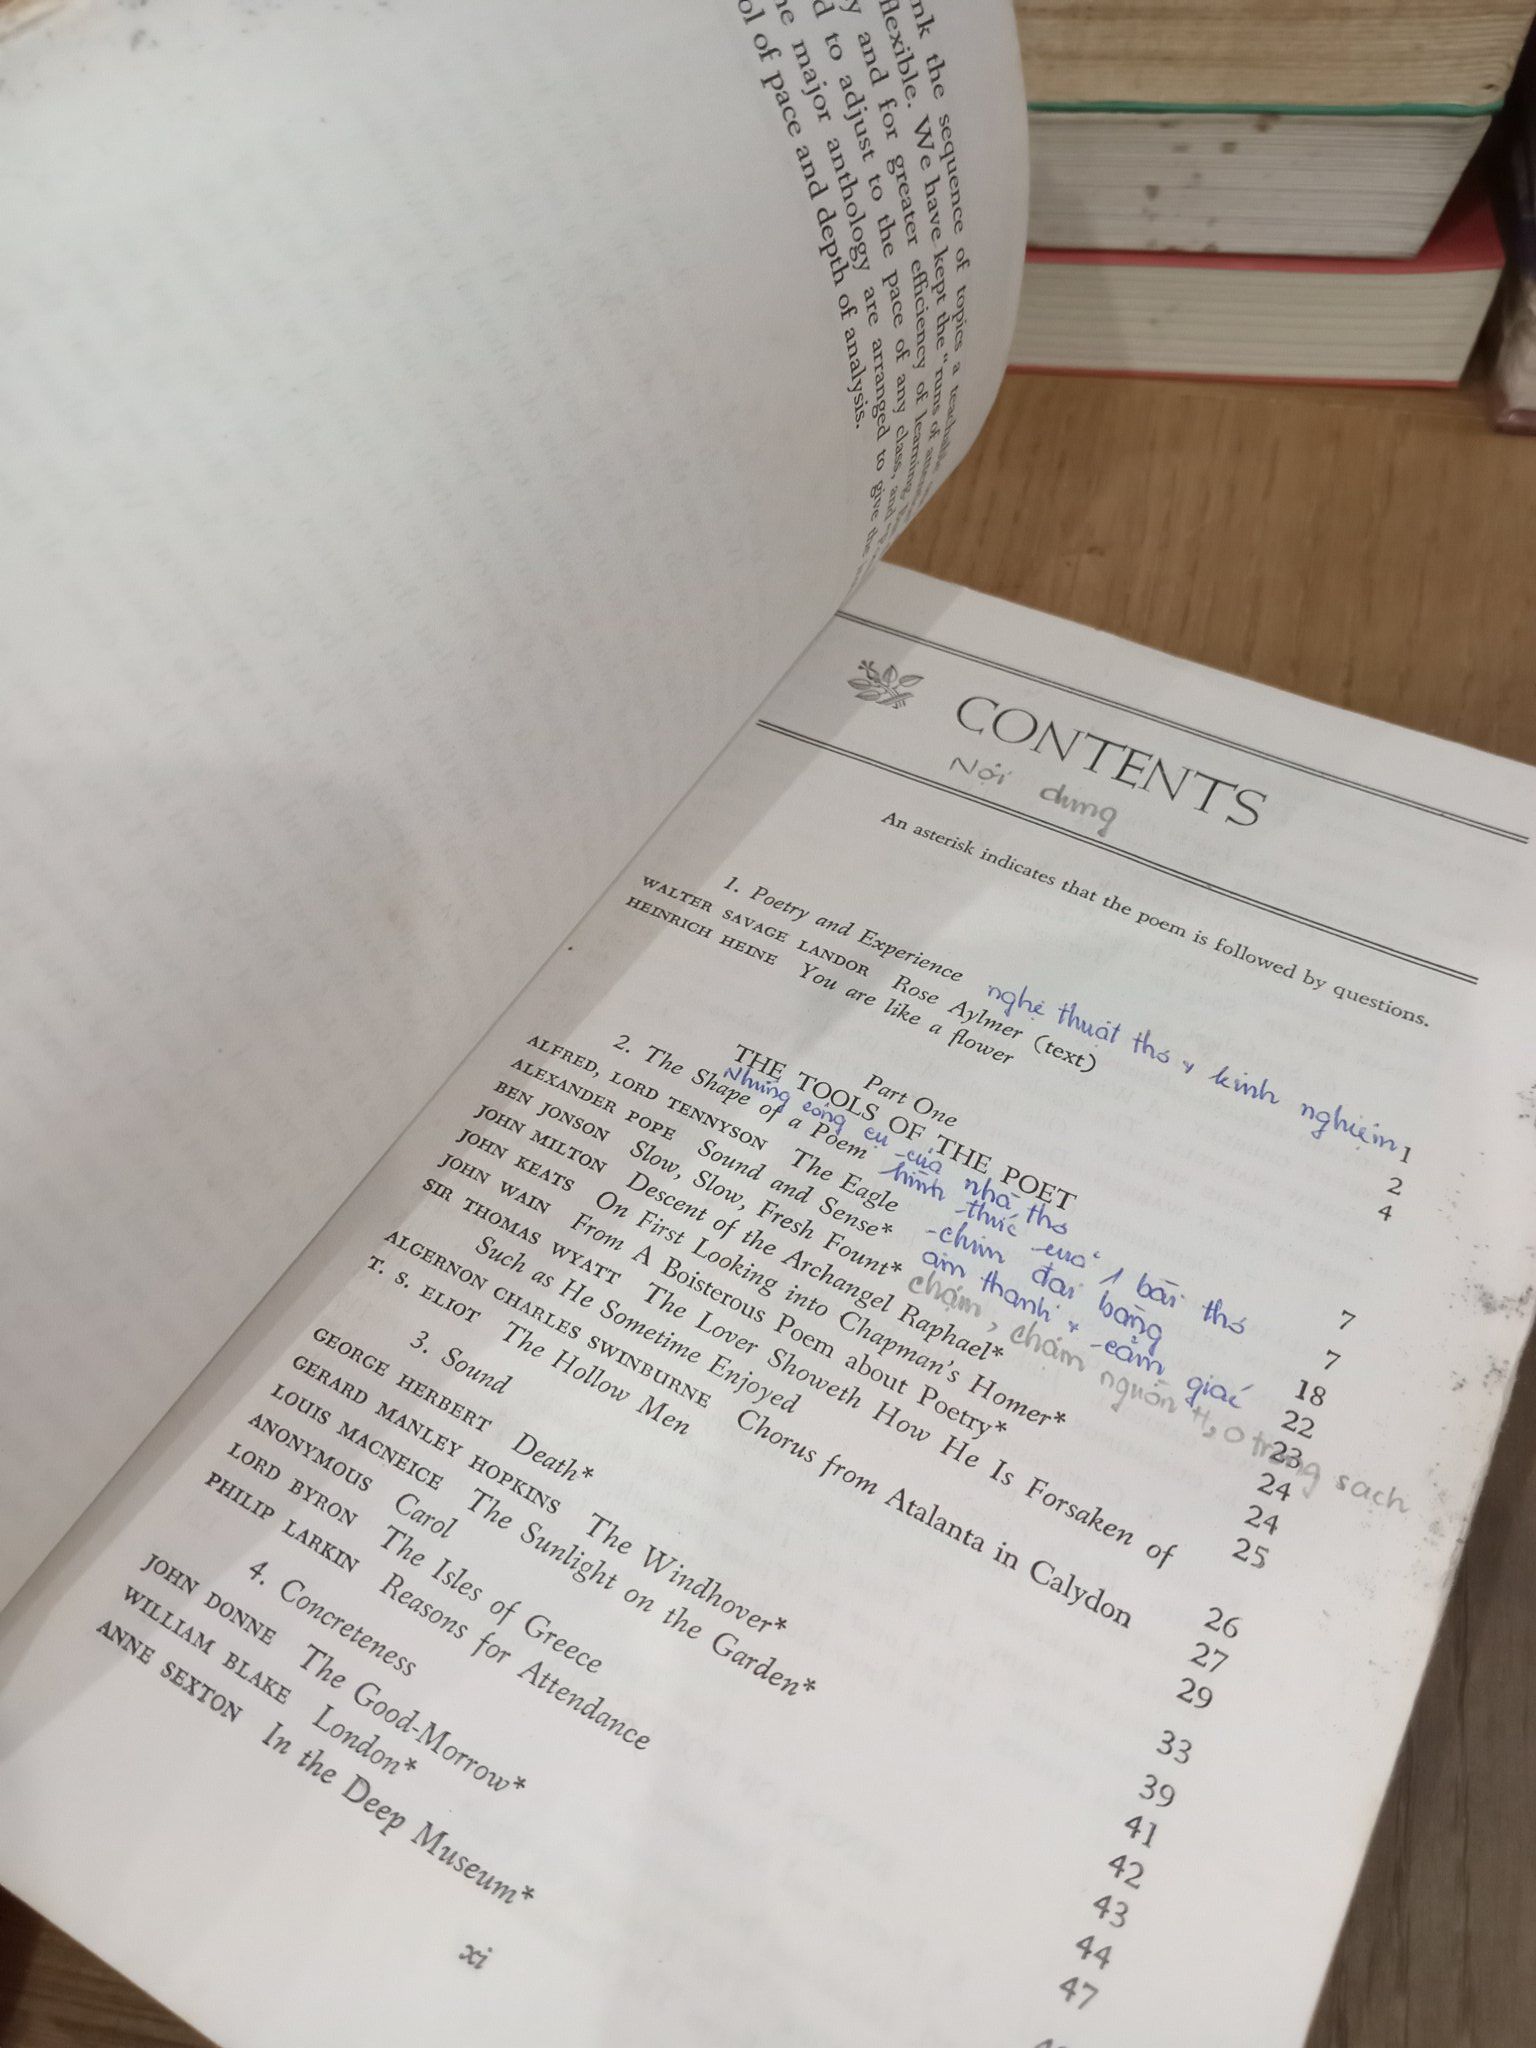 nk the sequence of topics a teachable
flexible. We have kept the "runs of
y and for greater efficiency of learning,
d to adjust to the pace of any class, and
e major anthology are arranged to give the
ol of pace and depth of analysis.
CONTENTS
Nội dung
An asterisk indicates that the poem is followed by questions.
1. Poetry and Experience nghệ thuật thơ & kinh nghiệm 1
WALTER SAVAGE LANDOR Rose Aylmer (text) 2
HEINRICH HEINE You are like a flower 4
Part One
THE TOOLS OF THE POET
Những công cụ của nhà thơ
2. The Shape of a Poem hình thức của 1 bài thơ 7
ALFRED, LORD TENNYSON The Eagle chim đại bàng 7
ALEXANDER POPE Sound and Sense* âm thanh & cảm giác 18
BEN JONSON Slow, Slow, Fresh Fount* chậm, chậm nguồn trong sạch 22
JOHN MILTON Descent of the Archangel Raphael* 23
JOHN KEATS On First Looking into Chapman's Homer* 24
JOHN WAIN From A Boisterous Poem about Poetry* 24
SIR THOMAS WYATT The Lover Showeth How He Is Forsaken of 25
Such as He Sometime Enjoyed
ALGERNON CHARLES SWINBURNE Chorus from Atalanta in Calydon 26
T. S. ELIOT The Hollow Men 27
3. Sound 29
GEORGE HERBERT Death* 33
GERARD MANLEY HOPKINS The Windhover* 39
LOUIS MACNEICE The Sunlight on the Garden* 41
ANONYMOUS Carol 42
LORD BYRON The Isles of Greece 43
PHILIP LARKIN Reasons for Attendance 44
4. Concreteness 47
JOHN DONNE The Good-Morrow*
WILLIAM BLAKE London*
ANNE SEXTON In the Deep Museum*
xi